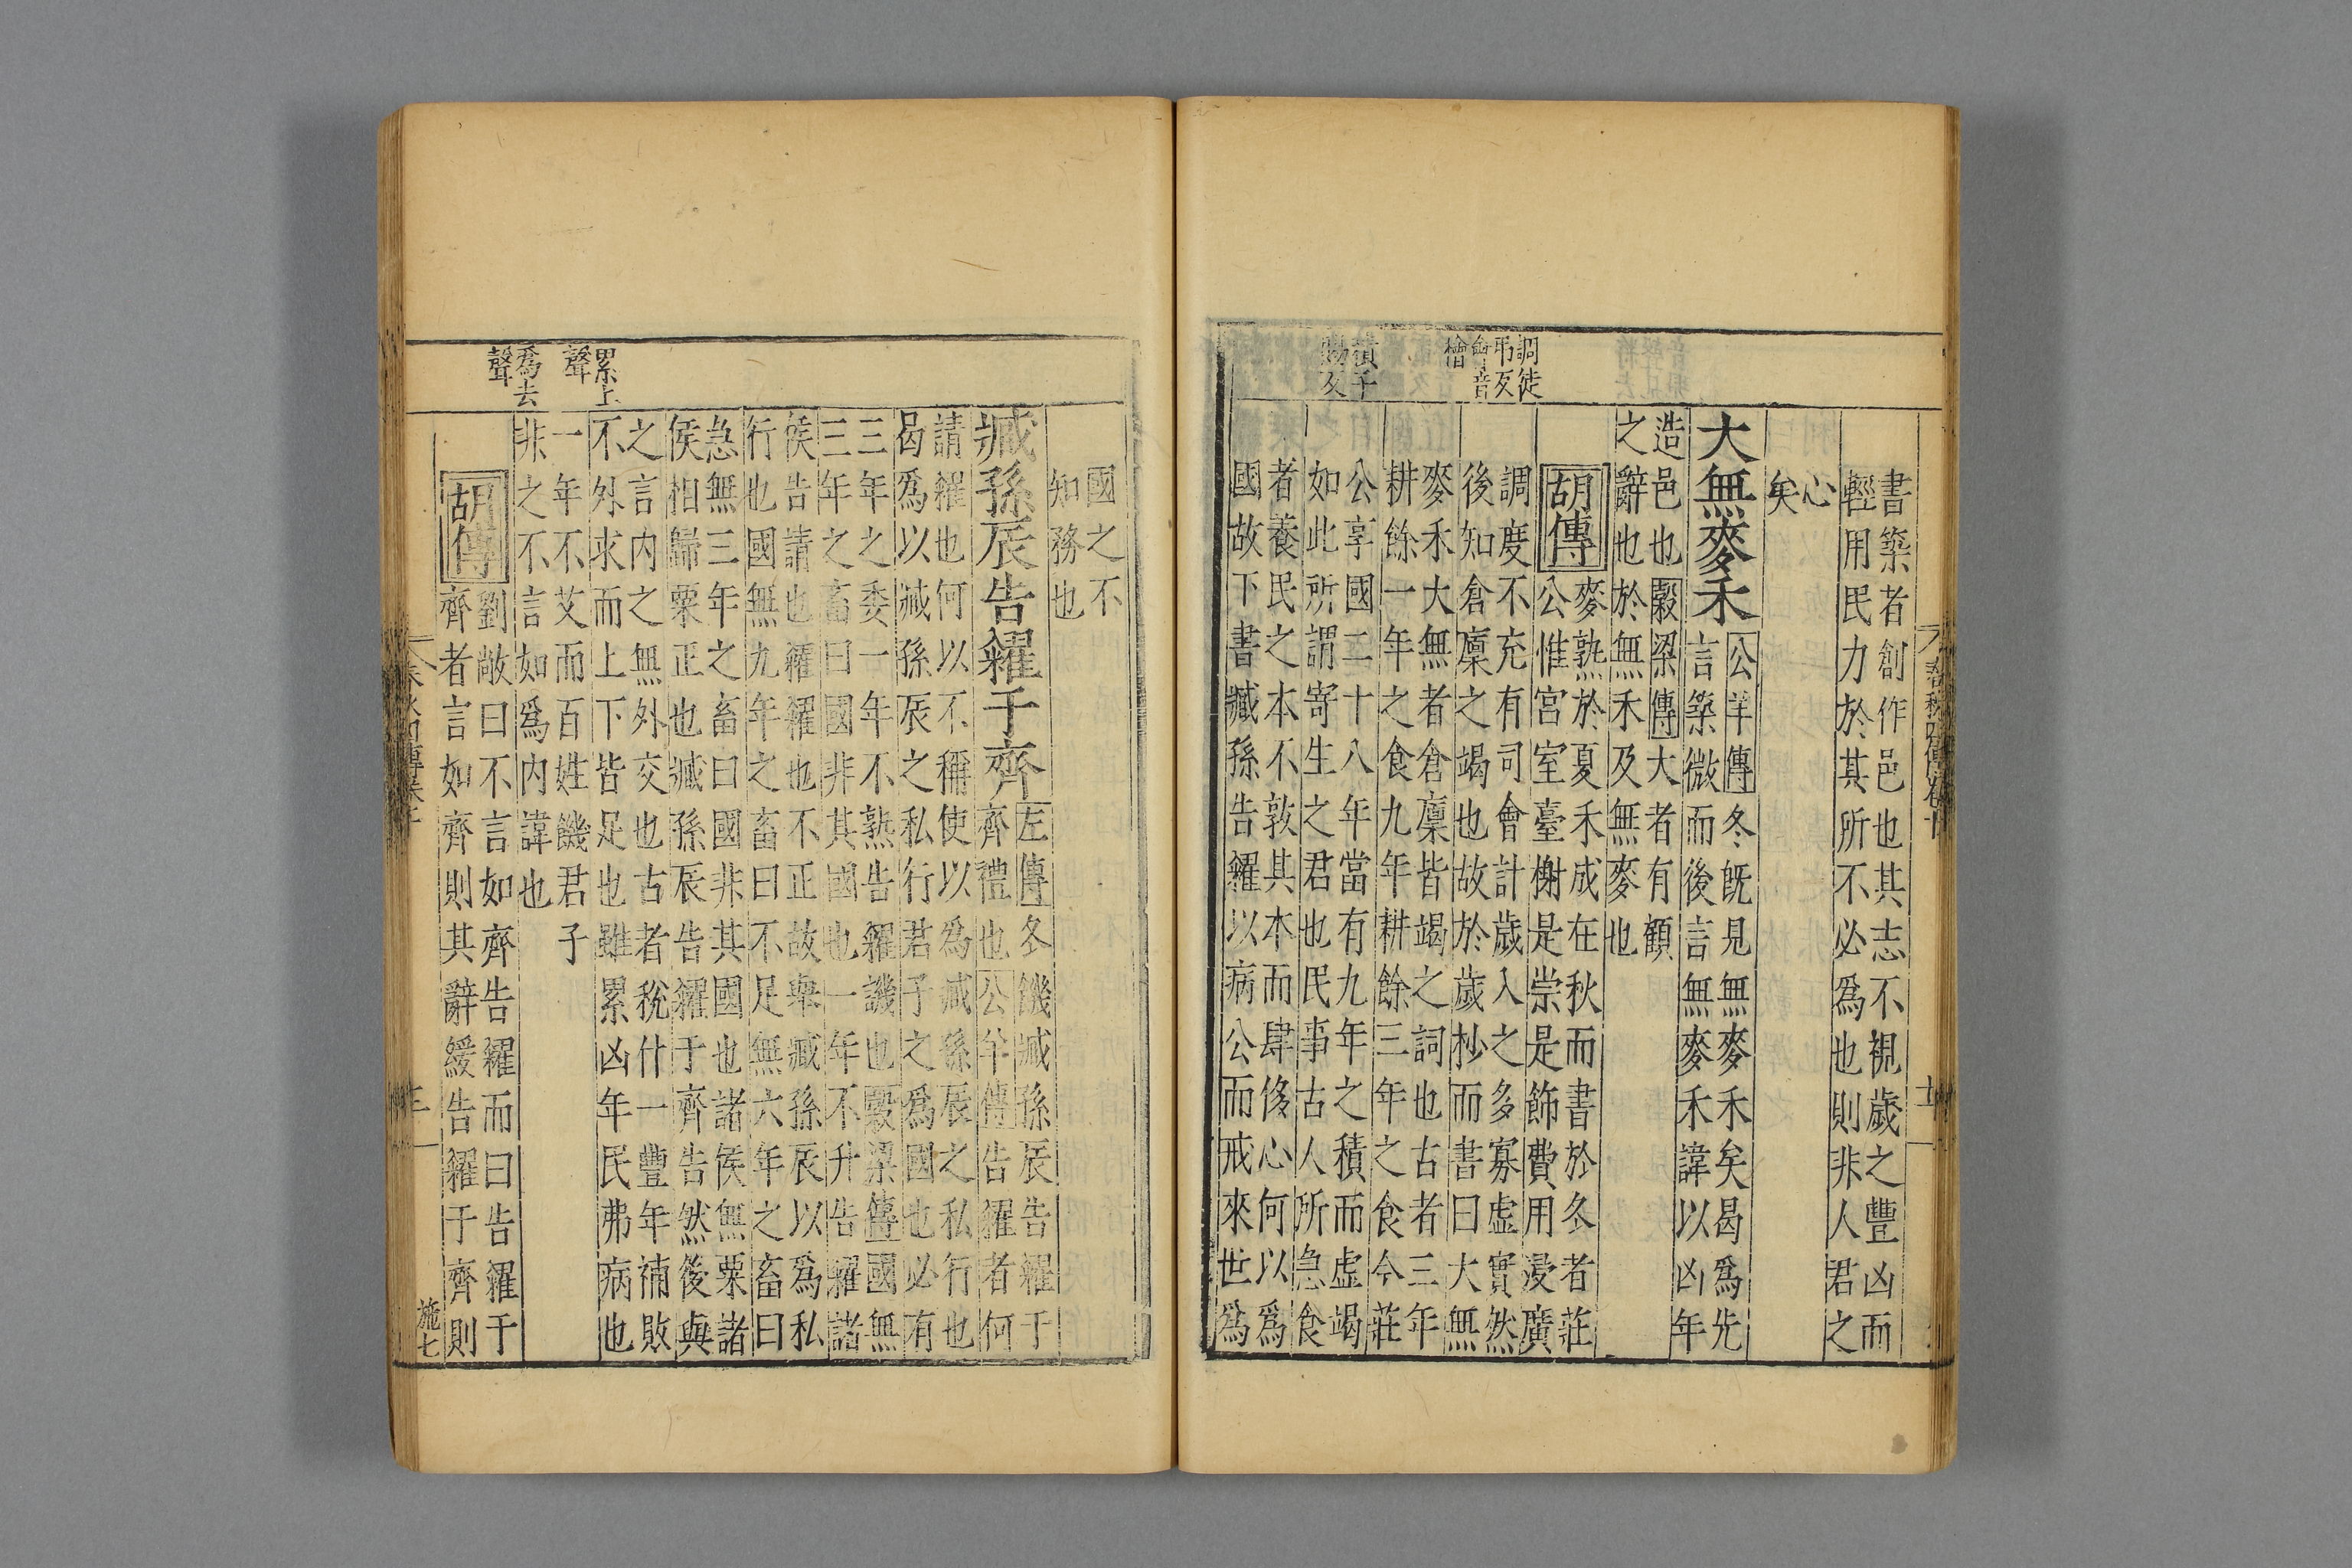 調徒
弔反
會音
檜
積子
賜反
書築者創作邑也其志不視歲之豐凶而
輕用民力於其所不必爲也則非人君之
心
矣
大無麥禾
公羊傳冬旣見無麥禾矣曷爲先
言築微而後言無麥禾諱以凶年
造邑也穀梁傳大者有顧
之辭也於無禾及無麥也
胡傳
麥熟於夏禾成在秋而書於冬者莊
公惟宮室臺榭是崇是飾費用浸廣
調度不充有司會計歲入之多寡虛實然
後知倉廩之竭也故於歲杪而書曰大無
麥禾大無者倉廩皆竭之詞也古者三年
耕餘一年之食九年耕餘三年之食今莊
公享國二十八年當有九年之積而虛竭
如此所謂寄生之君也民事古人所急食
者養民之本不敦其本而肆侈心何以爲
國故下書臧孫告糴以病公而戒來世爲
累上
聲
爲去
聲
國之不
知務也
臧孫辰告糴于齊
左傳冬饑臧孫辰告糴于
齊禮也公羊傳告糴者何
請糴也何以不稱使以爲臧孫辰之私行也
曷爲以臧孫辰之私行君子之爲國也必有
三年之委一年不熟告糴譏也穀梁傳國無
三年之畜曰國非其國也一年不升告糴諸
侯告請也糴糴也不正故舉臧孫辰以爲私
行也國無九年之畜曰不足無六年之畜曰
急無三年之畜曰國非其國也諸侯無粟諸
侯相歸粟正也臧孫辰告糴于齊告然後與
之言内之無外交也古者稅什一豐年補敗
不外求而上下皆足也雖累凶年民弗病也
一年不艾而百姓饑君子
非之不言如爲内諱也
胡傳
劉敞曰不言如齊告糴而曰告糴于
齊者言如齊則其辭緩告糴于齊則
施七